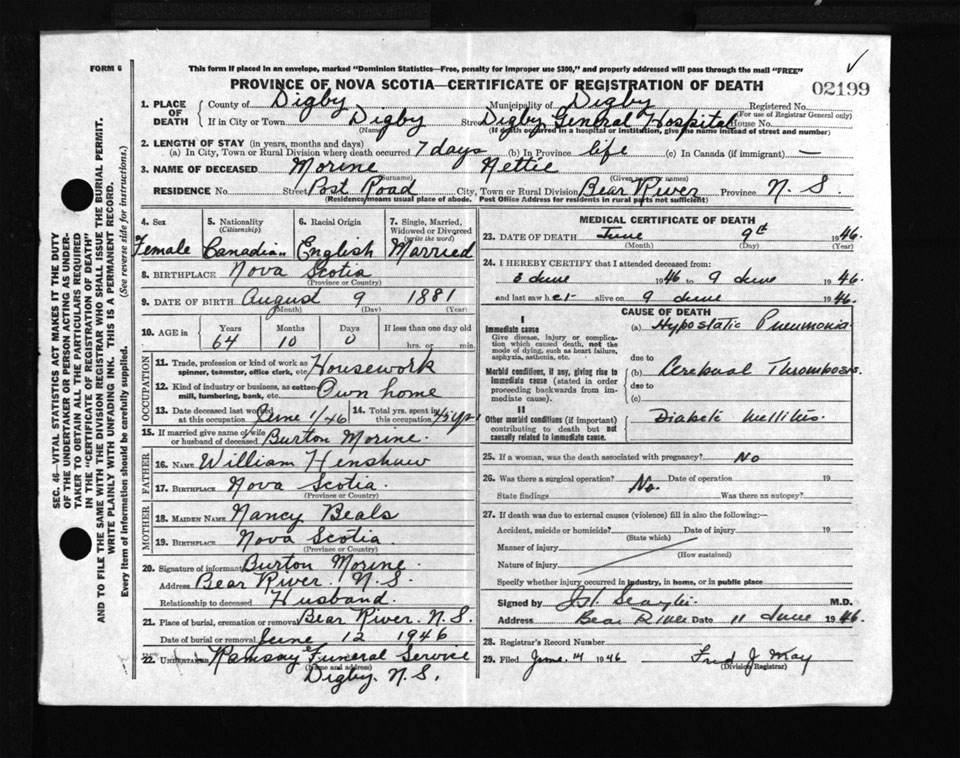 FORM 6
This form if placed in an envelope, marked "Dominion Statistics—Free, penalty for improper use $300," and properly addressed will pass through the mail "FREE"
PROVINCE OF NOVA SCOTIA—CERTIFICATE OF REGISTRATION OF DEATH
02199
1. PLACE OF DEATH
County of Digby Municipality of Digby Registered No.
(For use of Registrar General only)
If in City or Town Digby Street Digby General Hospital House No.
(Name) (If death occurred in a hospital or institution, give the name instead of street and number)
2. LENGTH OF STAY (in years, months and days)
(a) In City, Town or Rural Division where death occurred 7 days (b) In Province life (c) In Canada (if immigrant) —
3. NAME OF DECEASED Morine Nettie
(Surname) (Given names)
RESIDENCE No. Street Post Road City, Town or Rural Division Bear River Province N. S.
(Residence means usual place of abode. Post Office Address for residents in rural parts not sufficient)
4. Sex Female
5. Nationality (Citizenship) Canadian
6. Racial Origin English
7. Single, Married, Widowed or Divorced (write the word) Married
8. BIRTHPLACE Nova Scotia
(Province or Country)
9. DATE OF BIRTH August 9 1881
(Month) (Day) (Year)
10. AGE in Years 64 Months 10 Days 0 If less than one day old hrs. or min.
OCCUPATION
11. Trade, profession or kind of work as spinner, teamster, office clerk, etc. Housework
12. Kind of industry or business, as cotton mill, lumbering, bank, etc. Own home
13. Date deceased last worked at this occupation June 1/46
14. Total yrs. spent in this occupation 45 yrs
15. If married give name of wife or husband of deceased Burton Morine.
FATHER
16. NAME William Henshaw
17. BIRTHPLACE Nova Scotia.
(Province or Country)
MOTHER
18. MAIDEN NAME Nancy Beals
19. BIRTHPLACE Nova Scotia.
(Province or Country)
20. Signature of informant Burton Morine.
Address Bear River. N. S.
Relationship to deceased Husband.
21. Place of burial, cremation or removal Bear River. N. S.
Date of burial or removal June 12 1946
22. UNDERTAKER Ramsay Funeral Service
(Name and address)
Digby. N. S.
MEDICAL CERTIFICATE OF DEATH
23. DATE OF DEATH June 9th 1946
(Month) (Day) (Year)
24. I HEREBY CERTIFY that I attended deceased from:
3 June 1946 to 9 June 1946.
and last saw her alive on 9 June 1946.
CAUSE OF DEATH
I
Immediate cause
Give disease, injury or complication which caused death, not the mode of dying, such as heart failure, asphyxia, asthenia, etc.
(a) Hypostatic Pneumonia.
due to
Morbid conditions, if any, giving rise to immediate cause (stated in order proceeding backwards from immediate cause).
(b) Cerebral Thrombosis.
due to
(c)
II
Other morbid conditions (if important) contributing to death but not causally related to immediate cause.
Diabetes Mellitus.
25. If a woman, was the death associated with pregnancy? No
26. Was there a surgical operation? No. Date of operation 19
State findings Was there an autopsy?
27. If death was due to external causes (violence) fill in also the following:—
Accident, suicide or homicide? Date of injury 19
(State which)
Manner of injury
(How sustained)
Nature of injury
Specify whether injury occurred in industry, in home, or in public place
Signed by M.D.
Address Bear River Date 11 June 1946.
28. Registrar's Record Number
29. Filed June 14 1946 Fred J. May
(Division Registrar)
SEC. 46—VITAL STATISTICS ACT MAKES IT THE DUTY
OF THE UNDERTAKER OR PERSON ACTING AS UNDER-
TAKER TO OBTAIN ALL THE PARTICULARS REQUIRED
IN THE "CERTIFICATE OF REGISTRATION OF DEATH"
AND TO FILE THE SAME WITH THE DIVISION REGISTRAR WHO SHALL ISSUE THE BURIAL PERMIT.
WRITE PLAINLY WITH UNFADING INK. THIS IS A PERMANENT RECORD.
Every item of information should be carefully supplied. (See reverse side for instructions.)